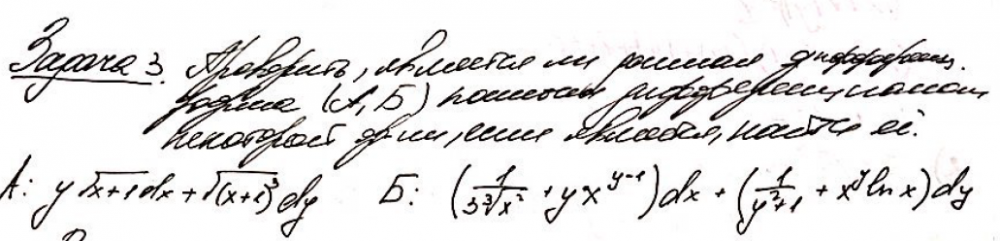 Задача 3. Проверить, является ли данная дифференц.
форма (А, Б) полным дифференциалом
некоторой ф-ии, если является, найти её.
А: y√(x+1) dx + √((x+1)³) dy Б: (1/(3∛x²) + yx^(y-1)) dx + (1/(y²+1) + x^y ln x) dy